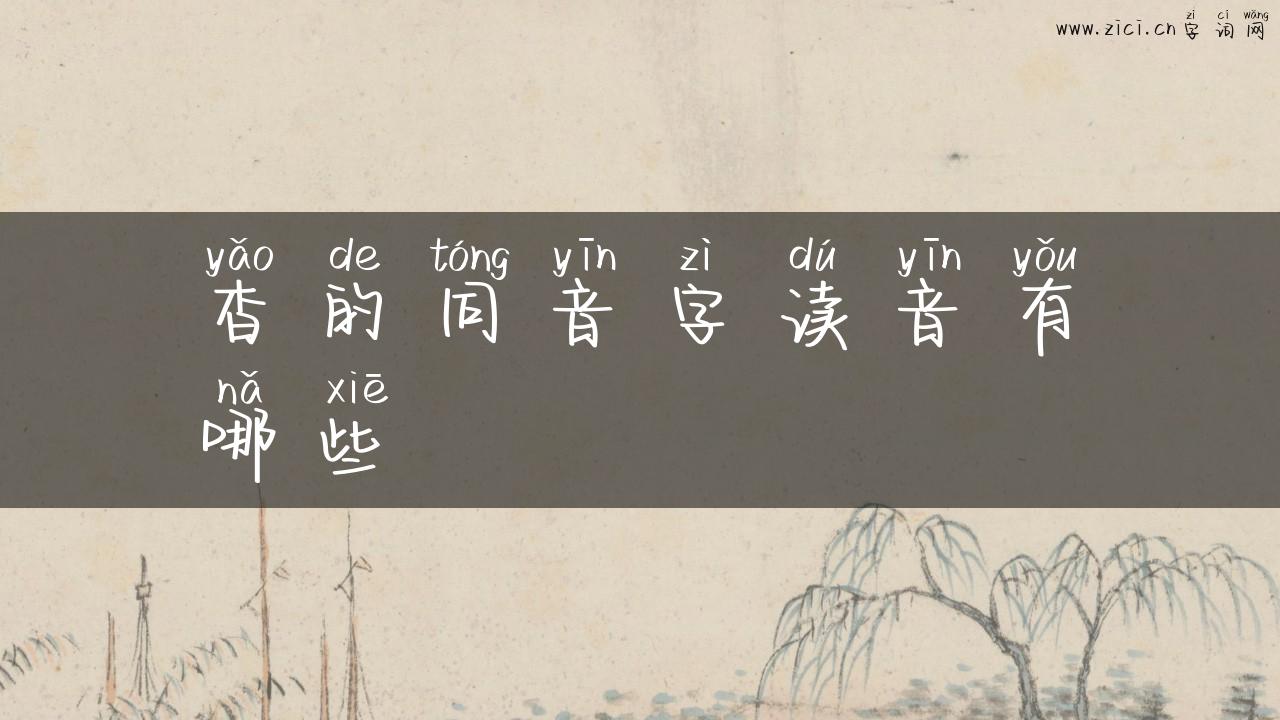 zì cí wǎng
www.zici.cn 字词网
yǎo de tóng yīn zì dú yīn yǒu
杳的同音字读音有
nǎ xiē
哪些